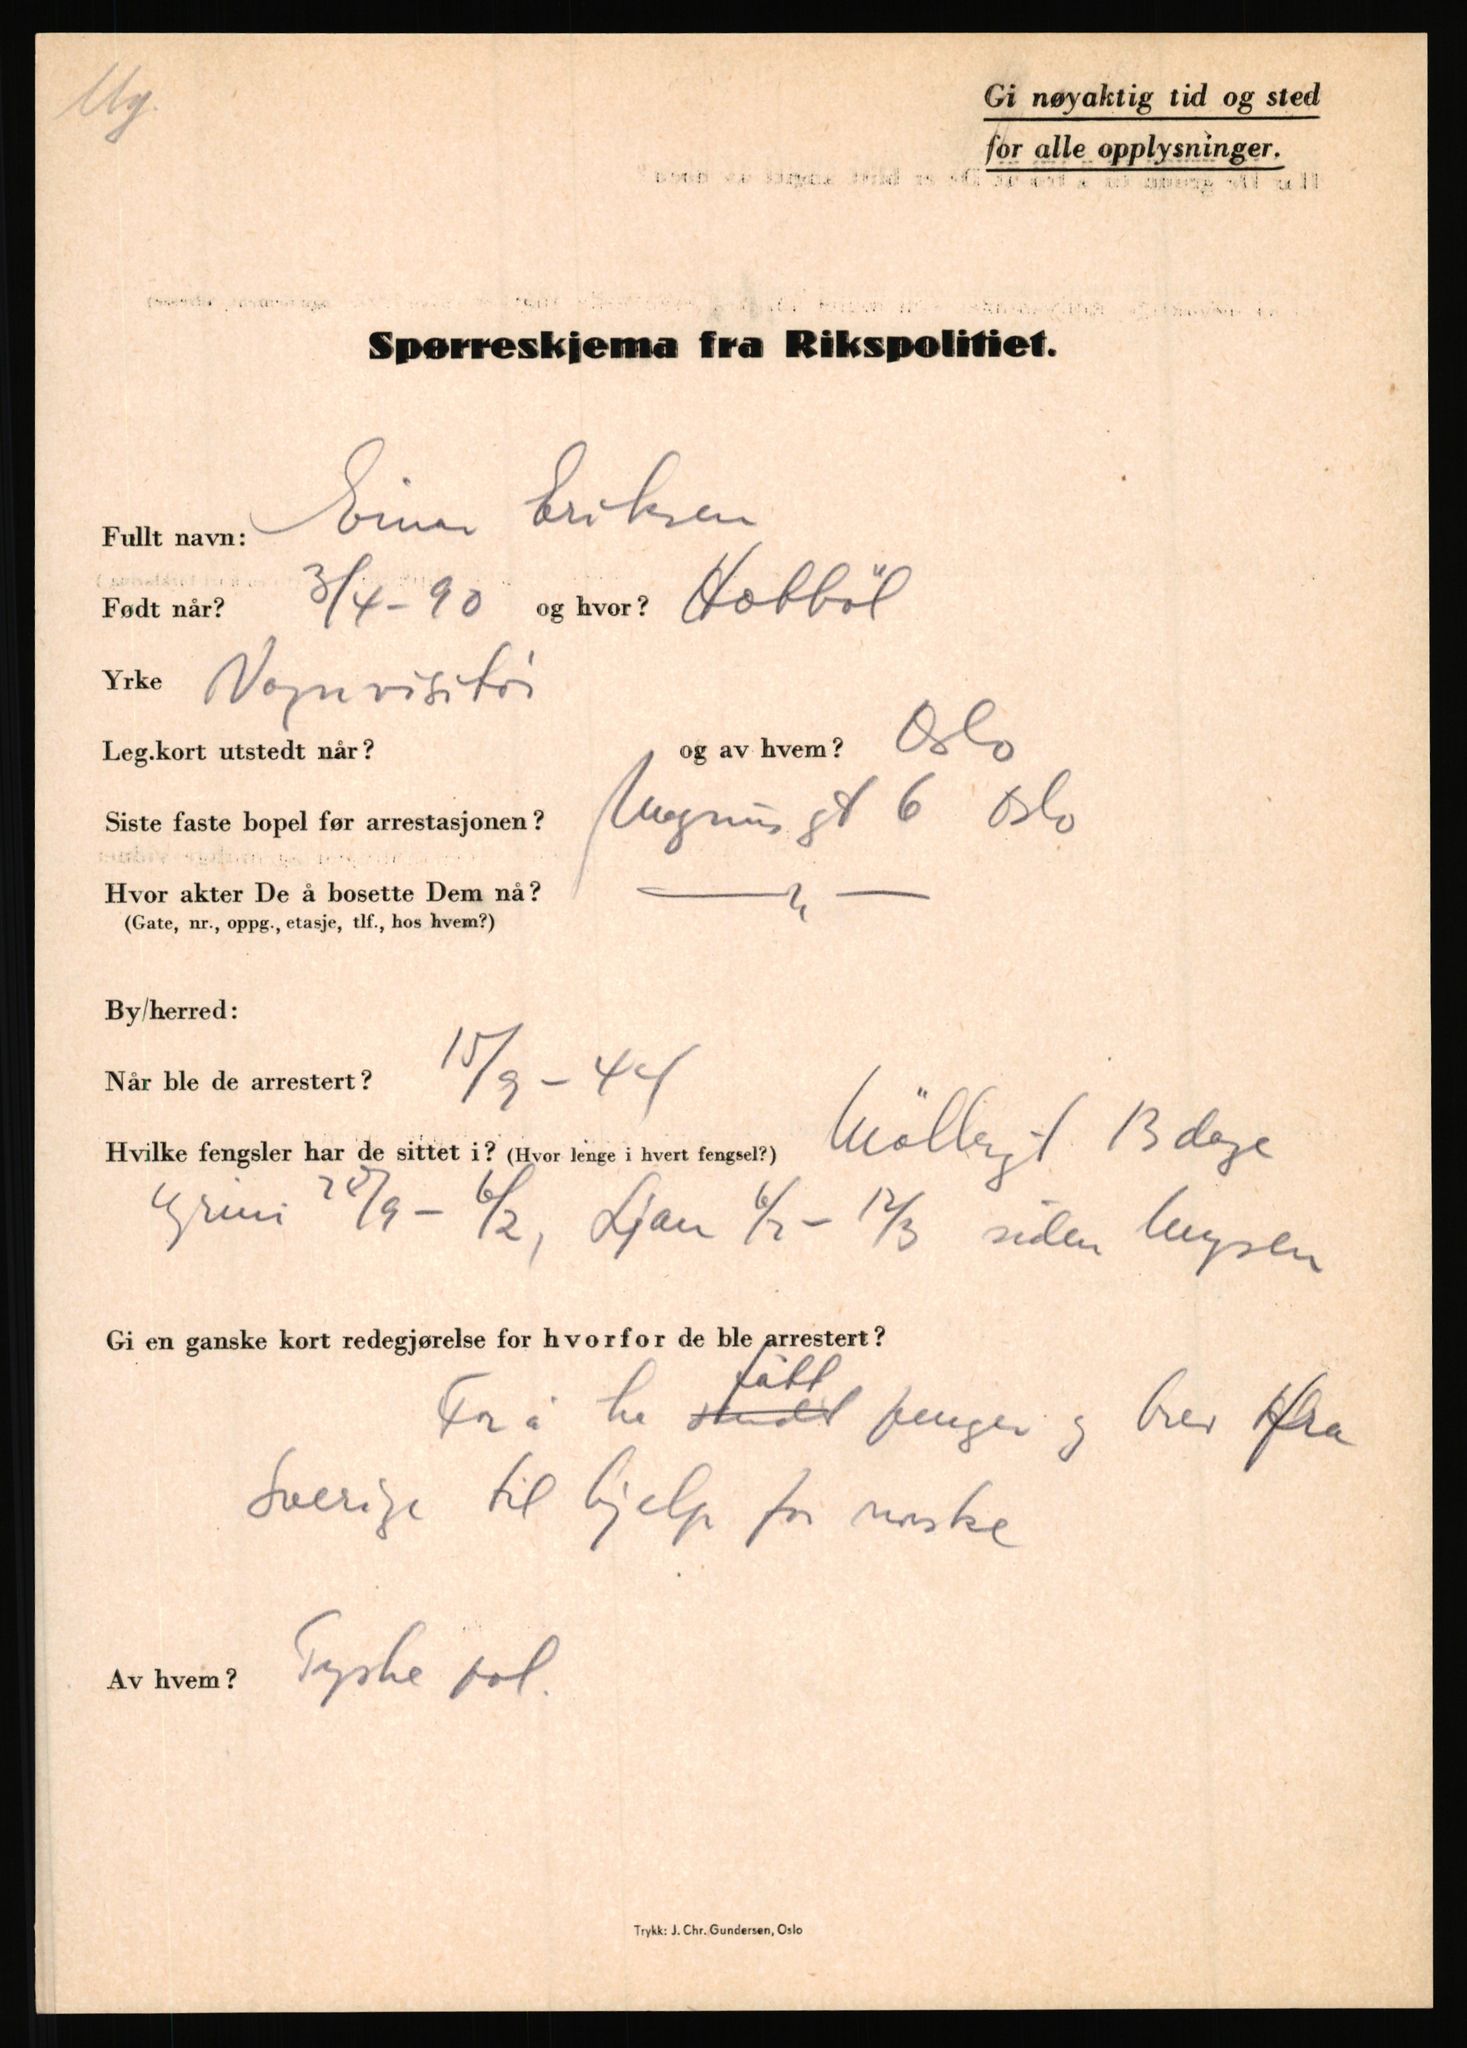 Mg.
Gi nøyaktig tid og sted
for alle opplysninger.
Spørreskjema fra Rikspolitiet.
Fullt navn: Einar Eriksen
Født når? 3/4-90 og hvor? Hobböl
Yrke Vognvisitör
Leg.kort utstedt når? og av hvem? Oslo
Siste faste bopel før arrestasjonen? Magnusgt 6 Oslo
Hvor akter De å bosette Dem nå? — " —
(Gate, nr., oppg., etasje, tlf., hos hvem?)
By/herred:
Når ble de arrestert? 15/9-44
Hvilke fengsler har de sittet i? (Hvor lenge i hvert fengsel?) Möllergt 13 dage
Grini 28/9-6/2, Ljan 6/2-12/3 siden Mysen
Gi en ganske kort redegjørelse for hvorfor de ble arrestert?
fått
For å ha sendt penger og brev fra
Sverige til hjelp for norske
Av hvem? Tyske pol.
Trykk: J. Chr. Gundersen, Oslo